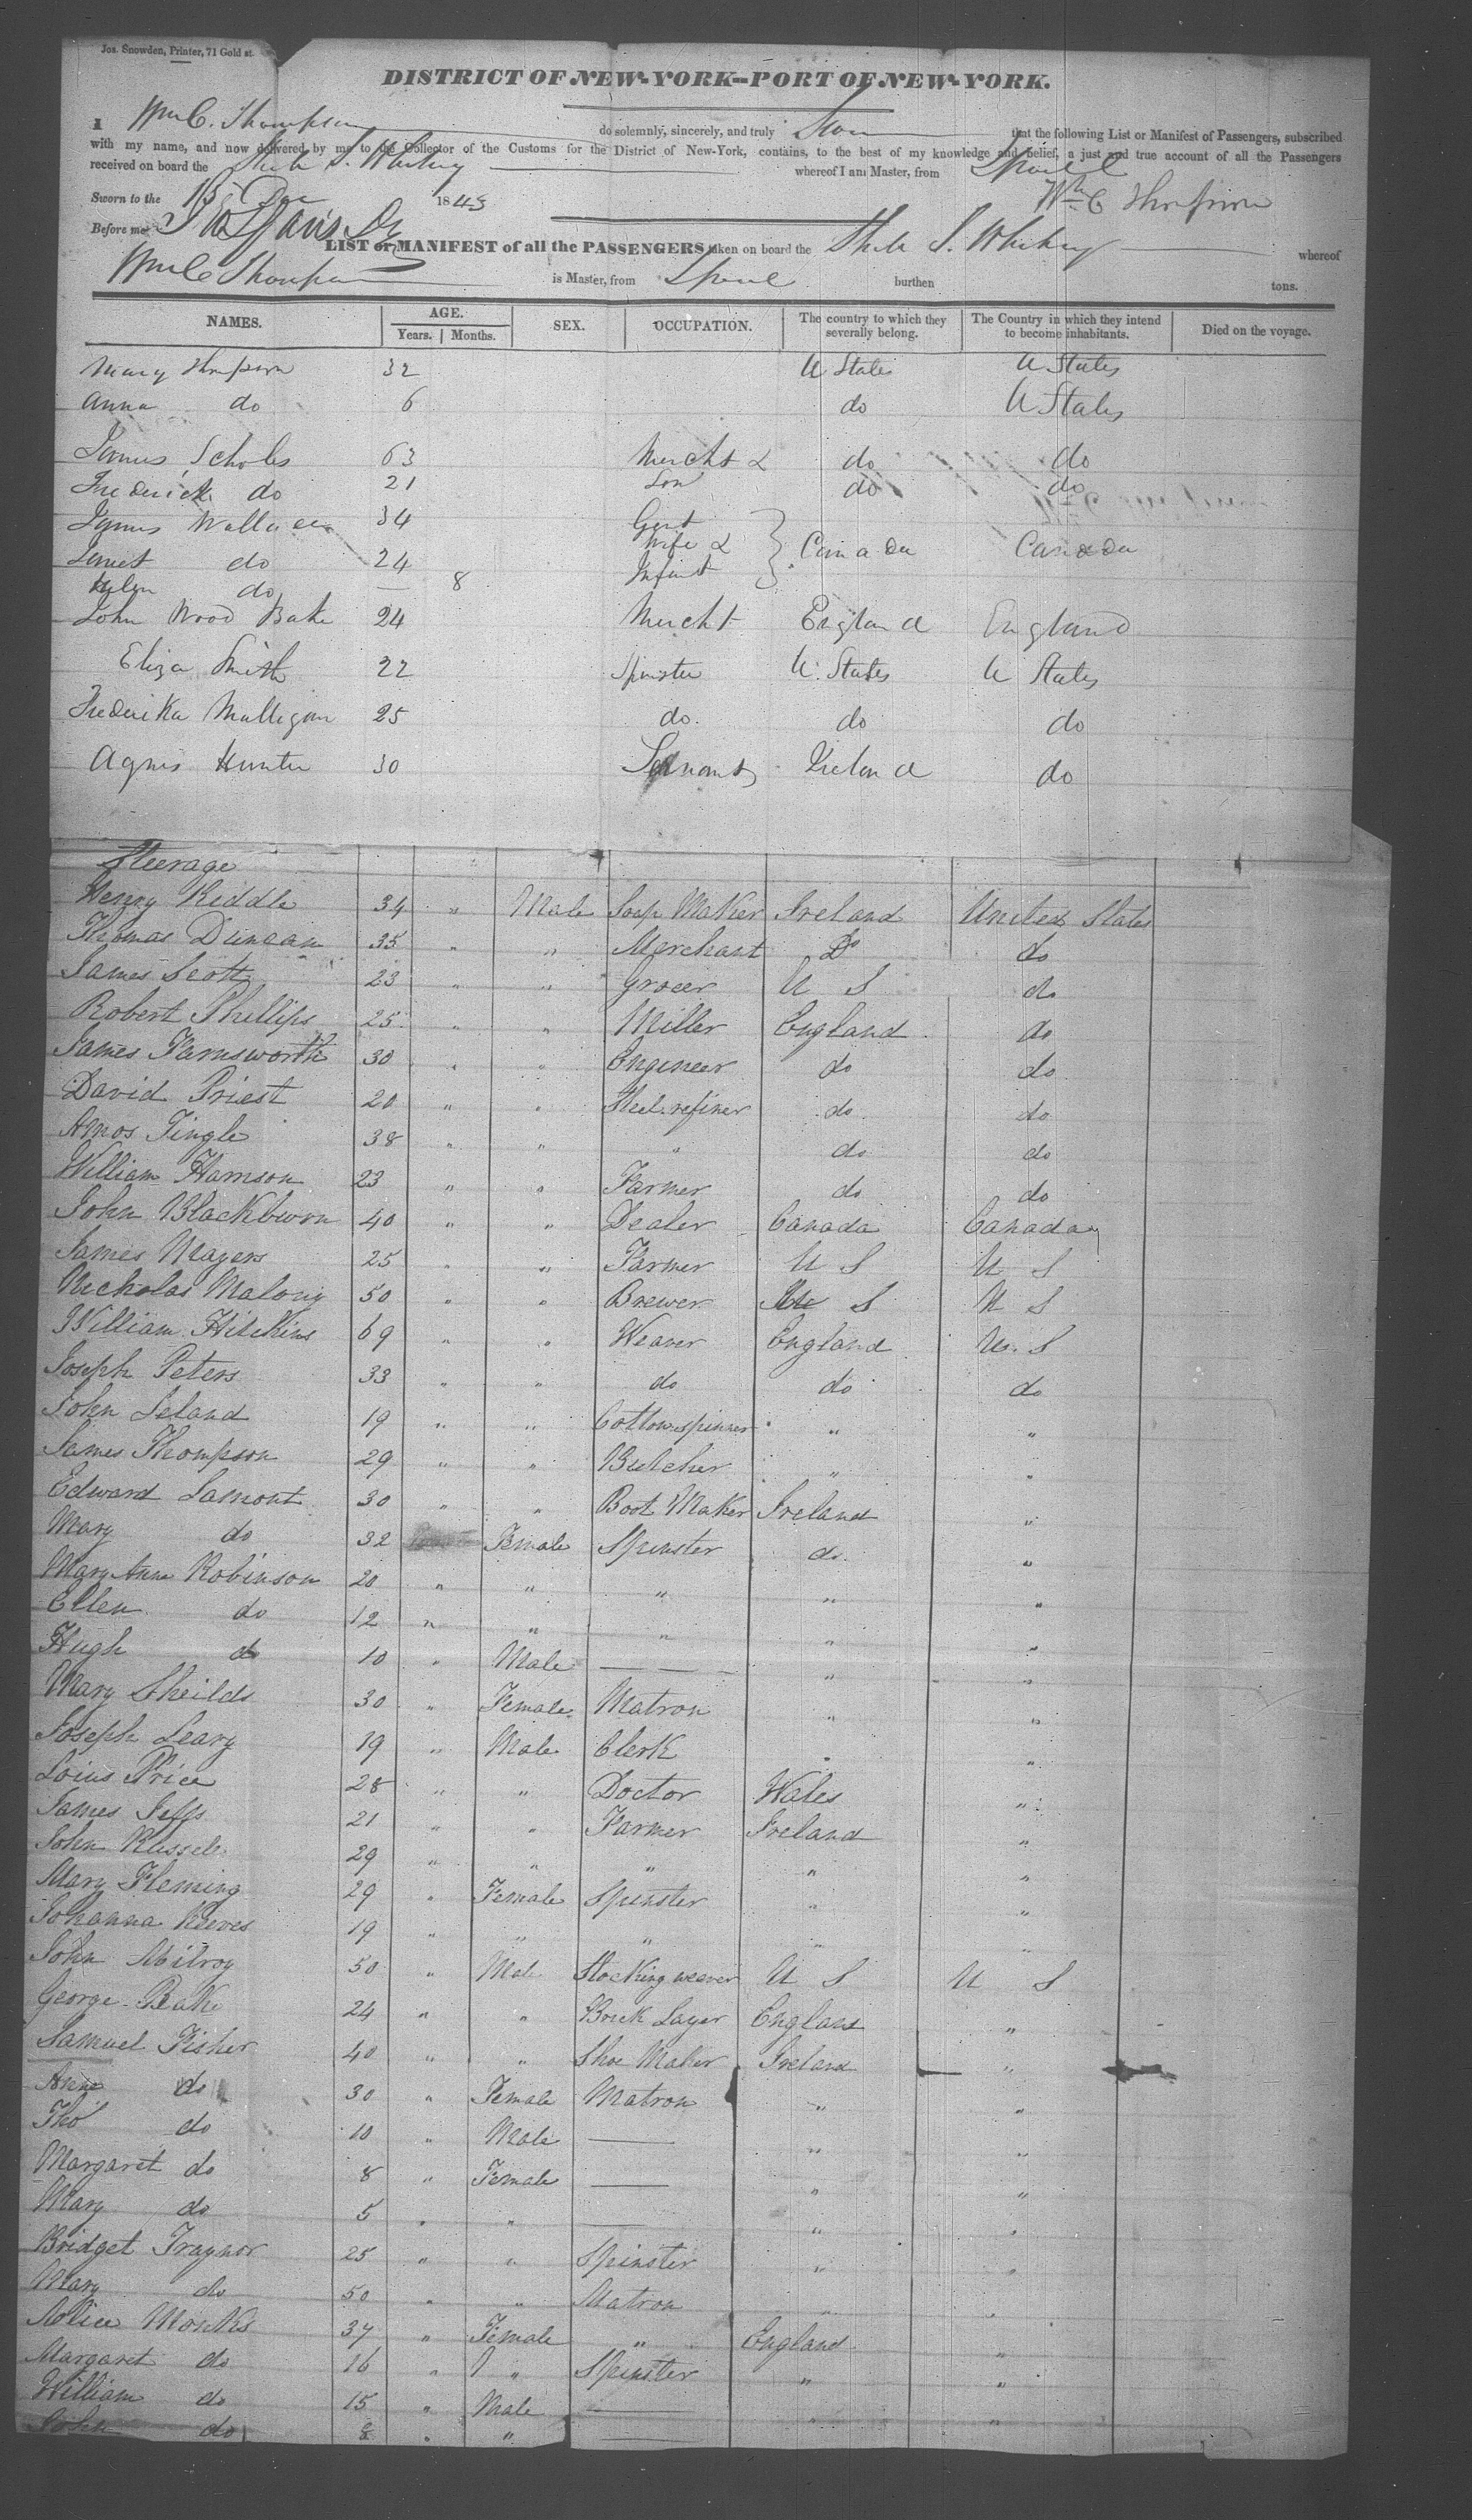 Jos. Snowden, Printer, 71 Gold st.
DISTRICT OF NEW-YORK—PORT OF NEW-YORK.
I Wm C. Thompson do solemnly, sincerely, and truly Swear that the following List or Manifest of Passengers, subscribed
with my name, and now delivered by me to the Collector of the Customs for the District of New-York, contains, to the best of my knowledge and belief, a just and true account of all the Passengers
received on board the S. Whitney whereof I am Master, from Lpool
Wm C Thompson
Sworn to the 15 Dec 1845
Before me
LIST or MANIFEST of all the PASSENGERS taken on board the S. Whitney whereof
Wm C Thompson is Master, from Lpool burthen tons.
NAMES. AGE. Years. Months. SEX. OCCUPATION. The country to which they severally belong. The Country in which they intend to become inhabitants. Died on the voyage.
Mary Thompson 32 U States U States
Anna do 6 do U States
James Scholes 63 Mercht & do do
Frederick do 21 Son do do
James Wallace 34 Gent
Janet do 24 Wife & Canada Canada
Helen do — 8 Infant
John Wood Bake 24 Mercht England England
Eliza Smith 22 Spinster U. States U States
Frederika Mulligan 25 do. do do
Agnes Hunter 30 Servant Ireland do
Steerage
Henry Riddle 34 " Male Soap Maker Ireland United States
Thomas Duncan 35 " " Merchant Do do
James Scott 23 " " Grocer U S do
Robert Phillips 25 " " Miller England do
James Farnsworth 30 " " Engineer do do
David Priest 20 " " Steel refiner do do
Amos Tingle 38 " " " do do
William Harrison 23 " " Farmer do do
John Blackburn 40 " " Dealer Canada Canada
James Mayers 25 " " Farmer U S U S
Nicholas Malony 50 " " Brewer U S U S
William Hitchins 69 " " Weaver England U. S
Joseph Peters 33 " " do do do
John Leland 19 " " Cotton spinner " "
James Thompson 29 " " Butcher " "
Edward Lamont 30 " " Boot Maker Ireland "
Mary do 32 Female Spinster do "
Mary Anne Robinson 20 " " " " "
Ellen do 12 " " " " "
Hugh do 10 " Male — " "
Mary Sheilds 30 " Female Matron " "
Joseph Leary 19 " Male Clerk " "
Loius Price 28 " " Doctor Wales "
James Jeffs 21 " " Farmer Ireland "
John Russele 29 " " " " "
Mary Fleming 29 " Female Spinster " "
Johanna Reeves 19 " " " " "
John Milroy 50 " Male Stocking weaver U S U S
George Bake 24 " " Brick Layer England "
Samuel Fisher 40 " " Shoe Maker Ireland "
Anne do 30 " Female Matron " "
Tho do 10 " Male — " "
Margaret do 8 " Female — " "
Mary do 5 " " — " "
Bridget Traynor 25 " " Spinster " "
Mary do 50 " " Matron " "
Alice Monks 37 " Female " England "
Margaret do 16 " " Spinster " "
William do 15 " Male — " "
John do 8 " " —